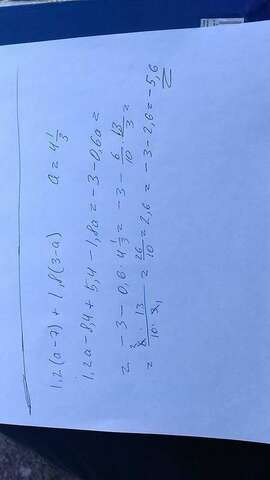 1,2(a-7)+1,8(3-a) a=4 1/3
1,2a-8,4+5,4-1,8a=-3-0,6a=
= -3-0,6·4 1/3 = -3- 6/10 · 13/3 =
= 2 6·13/10·3 1 = 26/10 = 2,6 = -3-2,6=-5,6